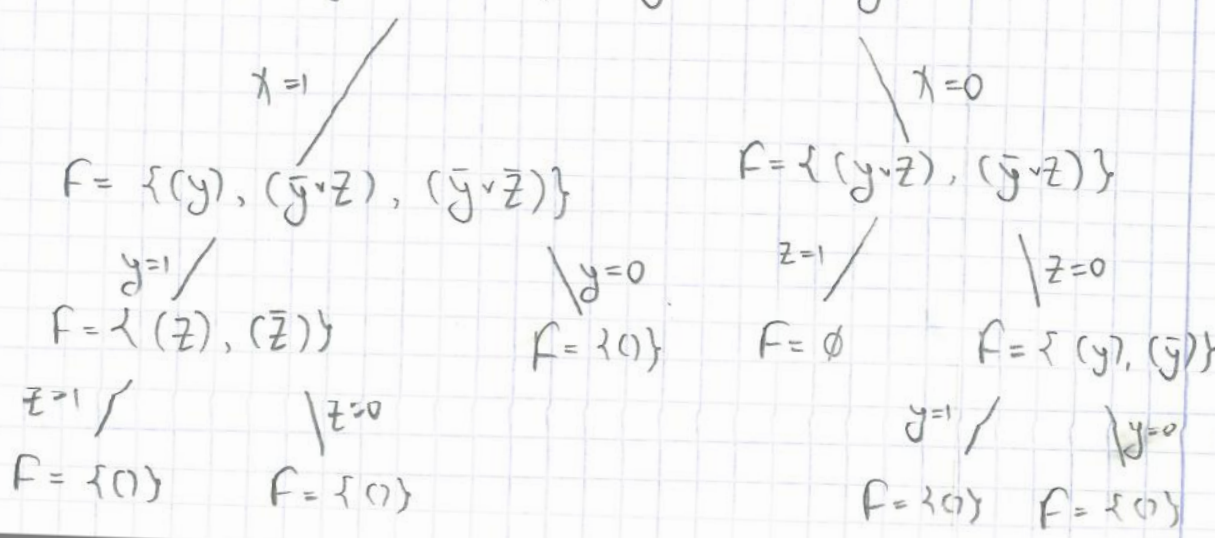 x=1 x=0
F= {(y), (ȳ∨z), (ȳ∨z̄)} F={(y∨z), (ȳ∨z)}
y=1 y=0 z=1 z=0
F={(z), (z̄)} F={()} F=∅ F={(y), (ȳ)}
z=1 z=0 y=1 y=0
F={()} F={()} F={()} F={()}